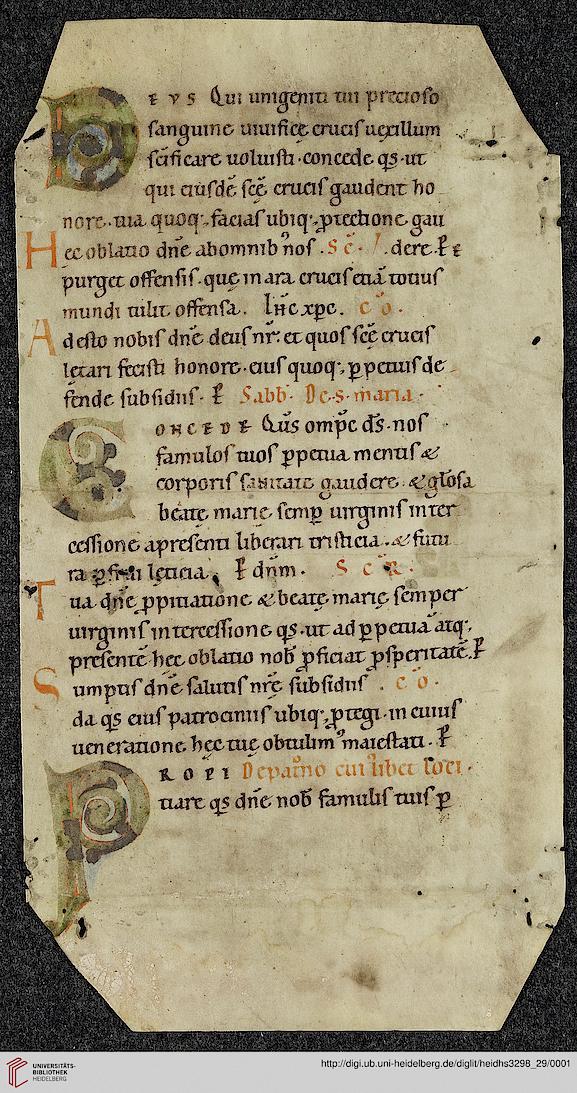 DEVS Qui unigeniti tui precioso
sanguine uiuifice crucis uexillum
sc̄ificare uoluisti · concede qs̄ · ut
qui eiusdē scę̄ crucis gaudent ho
nore · tua quoq; facias ubiq; ꝓtectione gau
Hec oblatio dn̄e abomnib᷒ nos · Sc̄ . dere · P̄
purget offensis · que in ara crucis etiā totius
mundi tulit offensa .
Adesto nobis dn̄e deus nr̄ · et quos scę̄ crucis
lętari fecisti honore · eius quoq; ꝑpetuis de
fende subsidiis · P̄ Sabb̄ · De · s · maria ·
CONCEDE Qūs omp̄c ds̄ · nos
famulos tuos ꝑpetua mentis &
corporis sanitate gaudere · & gl̄osa
beatę marię semꝑ uirginis inter
cessione apresenti liberari tristicia · & futu
ra ꝑfrui lęticia . P̄ dn̄m . SCR .
Tua dn̄e ꝓpitiatione & beatę marię semper
uirginis intercessione qs̄ · ut ad ꝑpetuā atq;
presentē hec oblatio nob̄ ꝓficiat ꝓsperitatē . P̄
Sumptis dn̄e salutis nr̄ę subsidiis . c̄o .
da qs̄ eius patrociniis ubiq; ꝓtegi · in cuius
ueneratione hęc tuę obtulim᷒ maiestati · P̄
PROPI De patrno cui᷒libet loci ·
tiare qs̄ dn̄e nob̄ famulis tuis ꝑ
UNIVERSITÄTS-
BIBLIOTHEK
HEIDELBERG
http://digi.ub.uni-heidelberg.de/diglit/heidhs3298_29/0001